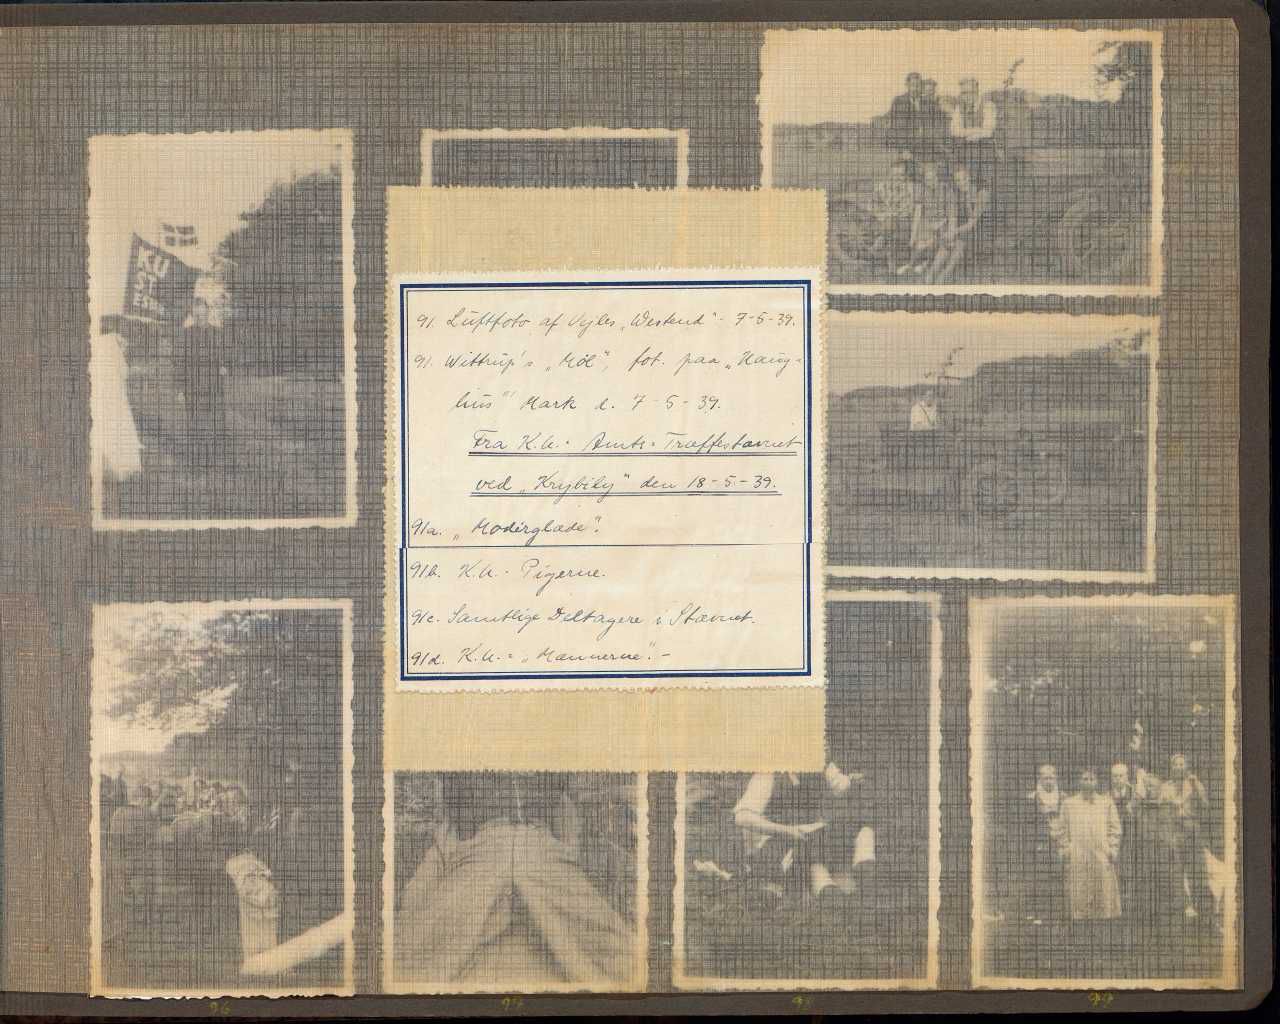 91. Luftfoto af Vejles „Westend" - 7-5-39.
91. Wittrup's „Møl", fot. paa „Haug=
hus"' Mark d. 7-5-39.
Fra K.U.= Amts= Træffestævnet
ved „Krybily" den 18-5-39.
91a. „Moderglæde".
91b. K.U.- Pigerne.
91c. Samtlige Deltagere i Stævnet.
91d. K.U.= „Mænnerne".-
KU
96
97
98
99